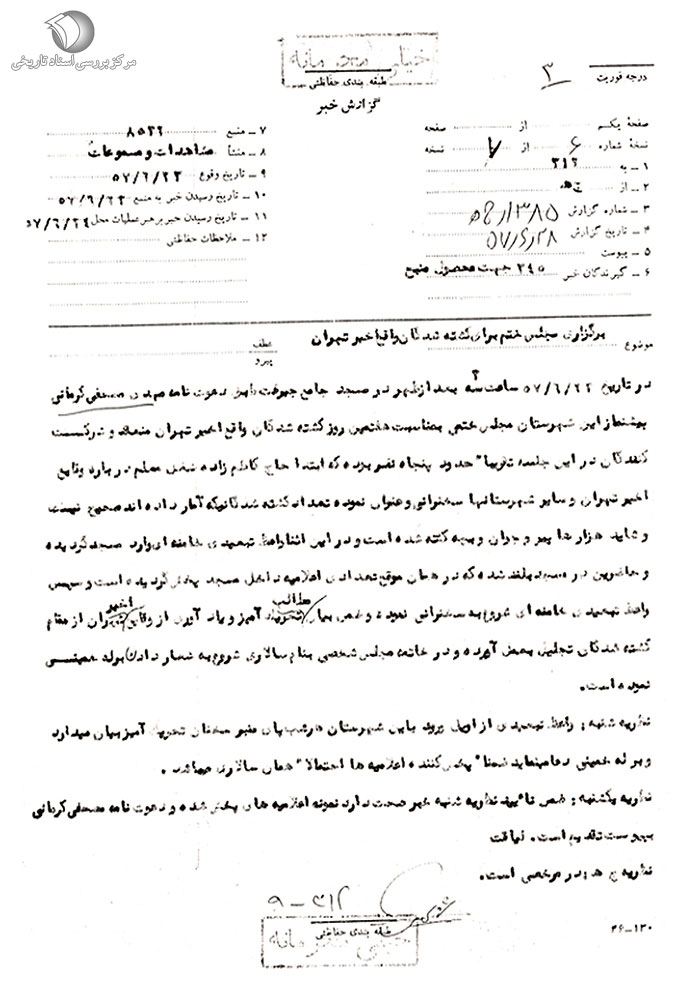 مرکز بررسی اسناد تاریخی
خیلی محرمانه
طبقه بندی حفاظتی
گزارش خبر
درجه فوریت ۳
صفحهٔ یکم از صفحه
نسخهٔ شماره ۶ از ۷ نسخه
۱ ــ به ۳۱۲
۲ ــ از ۵ﻫ
۳ ــ شماره گزارش
۴ ــ تاریخ گزارش ۵۷/۶/۲۸
۵ ــ پیوست
۶ ــ گیرندگان خبر ۳۴۵ جهت محصول منبع
۷ ــ منبع ۸۵۲۲
۸ ــ منشأ مشاهدات و مسموعات
۹ ــ تاریخ وقوع ۵۷/۶/۲۳
۱۰ ــ تاریخ رسیدن خبر به منبع ۵۷/۶/۲۳
۱۱ ــ تاریخ رسیدن خبر برهبر عملیات محل ۵۷/۶/۲۴
۱۲ ــ ملاحظات حفاظتی
موضوع برگزاری مجلس ختم برای کشته شدگان وقایع اخیر تهران
عطف
پیرو
در تاریخ ۵۷/۶/۲۳ ساعت سه ۳ بعد ازظهر در مسجد جامع جیرفت طبق دعوت نامه مهدی مصطفی کرمانی
پیشنماز این شهرستان مجلس ختمی بمناسبت هفتمین روز کشته شدگان وقایع اخیر تهران منعقد و شرکت
کنندگان در این جلسه تقریبا" حدود پنجاه نفر بوده که ابتدا حاج کاظم زاده شغل معلم درباره وقایع
اخیر تهران و سایر شهرستانها سخنرانی وعنوان نموده تعداد کشته شدگانیکه آمار داده اند صحیح نیست
و شاید هزارها پیر و جوان و بچه کشته شده است و در این اثنا واعظ تبعیدی خامنه ای وارد مسجد گردیده
و حاضرین در مسجد بلند شده که در همان موقع تعدادی اعلامیه داخل مسجد پخش گردیده است و سپس
واعظ تبعیدی خامنه ای شروع به سخنرانی نموده و ضمن بیان مطالب تحریک آمیز و یاد آوری از وقایع اخیر تهران از مقام
کشته شدگان تجلیل بعمل آورده و در خاتمه مجلس شخصی بنام سالاری شروع به شعار دادن بوله خمینی
نموده است.
نظریه شنبه: واعظ تبعیدی از اول ورود باین شهرستان هرشب پای منبر سخنان تحریک آمیز بیان میدارد
و بر له خمینی دعا مینماید ضمنا" پخش کننده اعلامیه ها احتمالا" همان سالاری میباشد.
نظریه یکشنبه: ضمن تأیید نظریه شنبه خبر صحت دارد نمونه اعلامیه های پخش شده و دعوت نامه مصطفی کرمانی
بپیوست تقدیم است. لیاقت
نظریه ج ه: در مرخصی است.
۹ – ۳۱۲
طبقه بندی حفاظتی
خیلی محرمانه
۲۶-۱۳۰